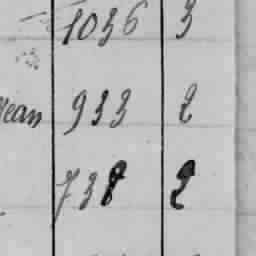 1036 3
Jean 933 2
738 2